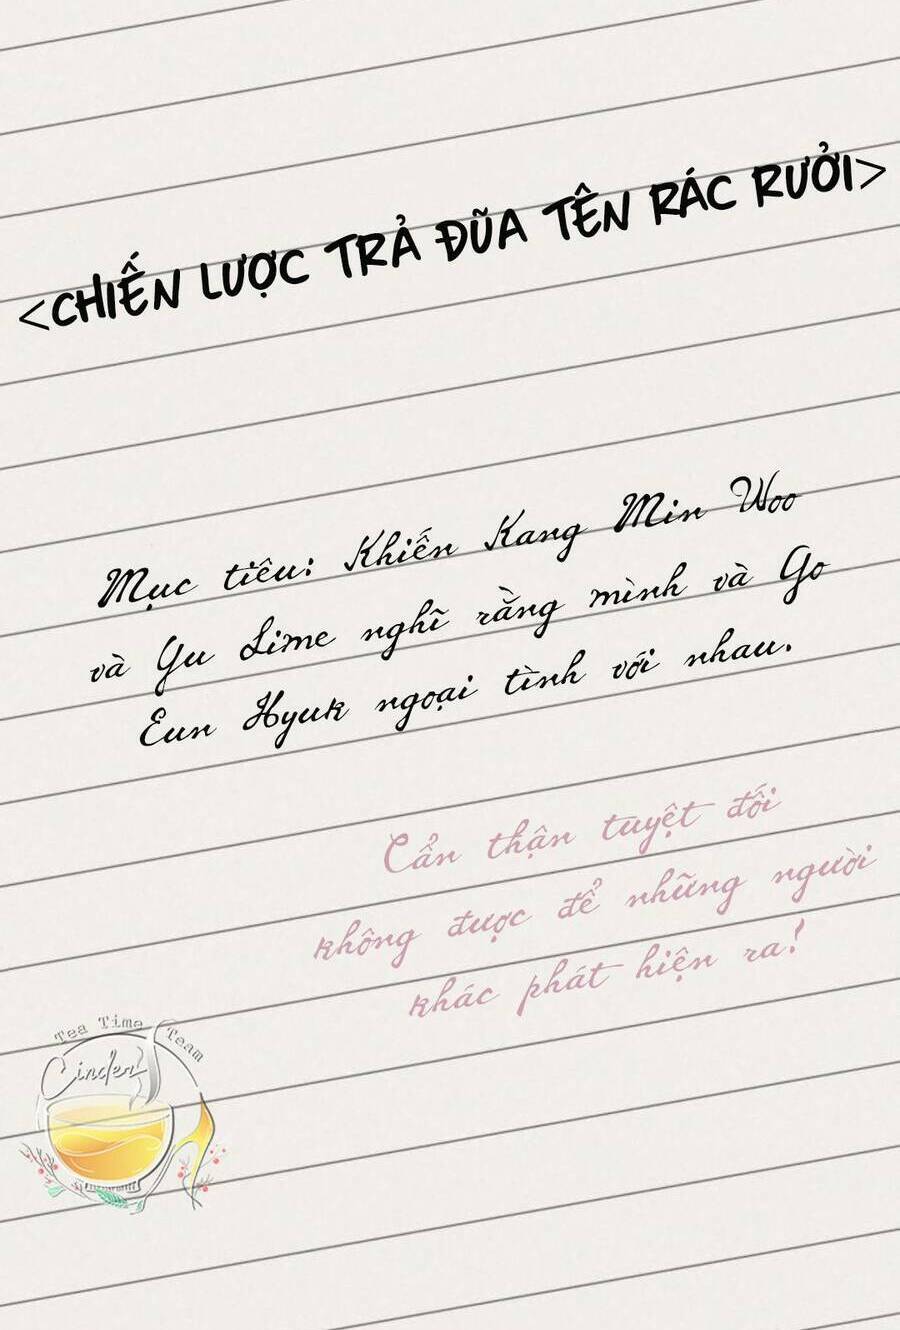 <CHIẾN LƯỢC TRẢ ĐŨA TÊN RÁC RƯỞI>
Mục tiêu: Khiến Kang Min Woo
và Yu Lime nghĩ rằng mình và Go
Eun Hyuk ngoại tình với nhau.
Cẩn thận tuyệt đối
không được để những người
khác phát hiện ra!
Tea Time Team
Cinder